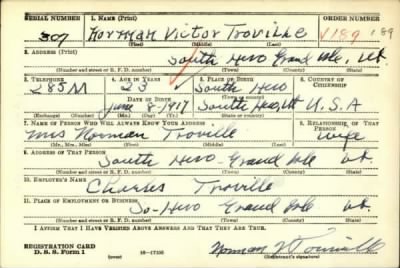 SERIAL NUMBER 1. NAME (Print) ORDER NUMBER
307 Norman Victor Troville V189 189
(First) (Middle) (Last)
2. ADDRESS (Print)
South Hero Grand Isle, Vt.
(Number and street or R. F. D. number) (Town) (County) (State)
3. TELEPHONE 4. AGE IN YEARS 5. PLACE OF BIRTH 6. COUNTRY OF CITIZENSHIP
285M 23 South Hero
DATE OF BIRTH
June 8-1917 South Hero, Vt U.S.A
(Exchange) (Number) (Mo.) (Day) (Yr.) (State or country)
7. NAME OF PERSON WHO WILL ALWAYS KNOW YOUR ADDRESS 8. RELATIONSHIP OF THAT PERSON
Mrs Norman Troville Wife
(Mr., Mrs., Miss) (First) (Middle) (Last)
9. ADDRESS OF THAT PERSON
South Hero - Grand Isle Vt.
(Number and street or R. F. D. number) (Town) (County) (State)
10. EMPLOYER'S NAME
Charles Troville
11. PLACE OF EMPLOYMENT OR BUSINESS
So-Hero Grand Isle Vt.
(Number and street or R. F. D. number) (Town) (County) (State)
I AFFIRM THAT I HAVE VERIFIED ABOVE ANSWERS AND THAT THEY ARE TRUE.
REGISTRATION CARD
D. S. S. Form 1 (over) Norman V Troville